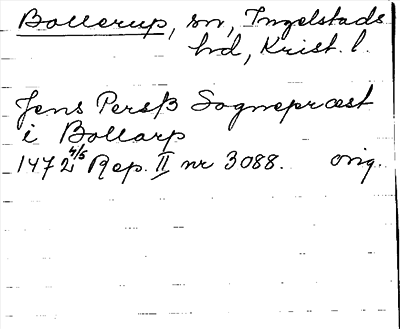 Bollerup, sn, Ingelstads
hd, Krist. l.
Jens Persß Sognepræst
i Bollarp
1472 4/5 Rep. II nr 3088. orig.